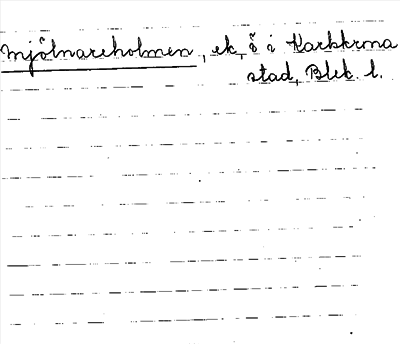 Mjölnareholmen, ek, ö i Karlskrona
stad, Blek. l.